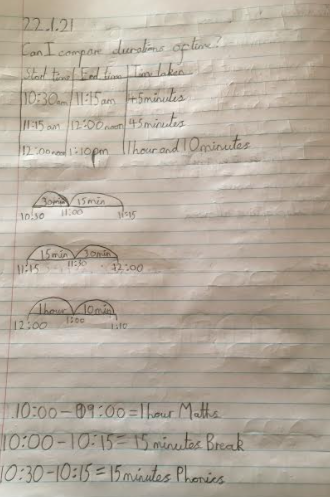 22.1.21
Can I compare durations of time?
Start time End time Time taken
10:30am 11:15am 45minutes
11:15am 12:00noon 45minutes
12:00noon 1:10pm 1hour and 10minutes
30min 15min
10:30 11:00 11:15
15min 30min
11:15 11:30 12:00
1hour 10min
12:00 1:00 1:10
10:00-09:00=1hour Maths
10:00-10:15=15minutes Break
10:30-10:15=15minutes Phonics